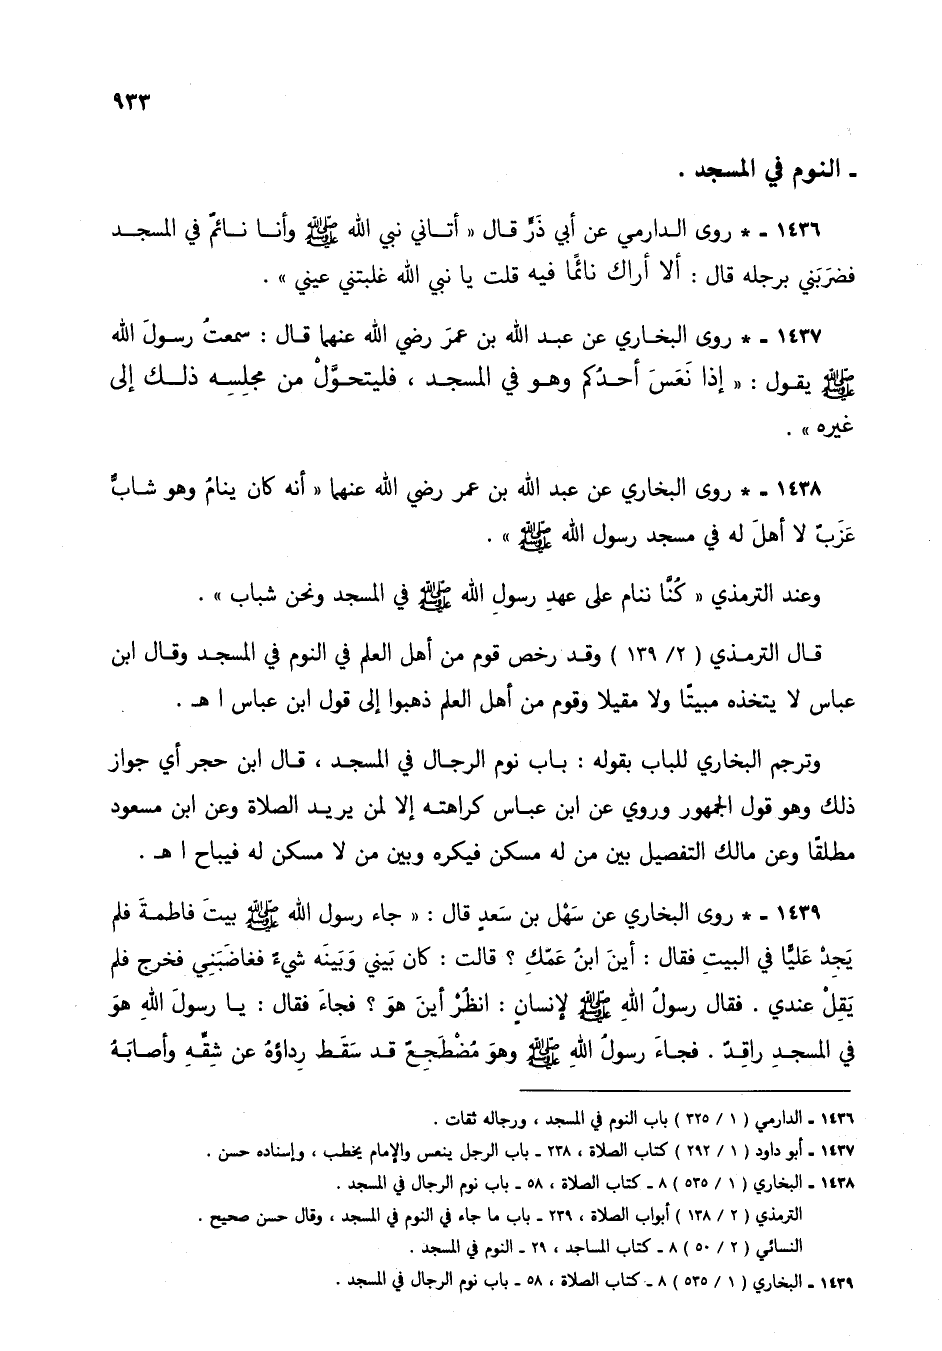 ٩٣٣
ـ النوم في المسجد .
١٤٣٦ ـ * روى الدارمي عن أبي ذَرٍّ قال « أتاني نبي الله ﷺ وأنا نائمٌ في المسجد
فضرَبَني برجله قال : ألا أراك نائمًا فيه قلت يا نبي الله غلبتني عيني » .
١٤٣٧ ـ * روى البخاري عن عبد الله بن عمرَ رضي الله عنهما قال : سمعتُ رسولَ الله
ﷺ يقول : « إذا نَعَسَ أحدُكم وهو في المسجد ، فليتحوَّلْ من مجلسِه ذلك إلى
غيره » .
١٤٣٨ ـ * روى البخاري عن عبد الله بن عمر رضي الله عنهما « أنه كان ينامُ وهو شابٌّ
عَزَبٌ لا أهلَ له في مسجد رسول الله ﷺ » .
وعند الترمذي « كُنَّا ننام على عهدِ رسولِ الله ﷺ في المسجد ونحن شباب » .
قال الترمذي ( ٢/ ١٣٩ ) وقد رخص قوم من أهل العلم في النوم في المسجد وقال ابن
عباس لا يتخذه مبيتًا ولا مقيلا وقوم من أهل العلم ذهبوا إلى قول ابن عباس ا هـ .
وترجم البخاري للباب بقوله : باب نوم الرجال في المسجد ، قال ابن حجر أي جواز
ذلك وهو قول الجمهور وروي عن ابن عباس كراهته إلا لمن يريد الصلاة وعن ابن مسعود
مطلقًا وعن مالك التفصيل بين من له مسكن فيكره وبين من لا مسكن له فيباح ا هـ .
١٤٣٩ ـ * روى البخاري عن سَهْل بن سَعدٍ قال : « جاء رسول الله ﷺ بيتَ فاطمةَ فلم
يَجِدْ عَليًّا في البيتِ فقال : أينَ ابنُ عَمّكِ ؟ قالت : كان بَيني وَبَينَه شيءٌ فغاضَبَنِي فخرج فلم
يَقِلْ عندي . فقال رسولُ اللهِ ﷺ لإنسانٍ : انظُرْ أينَ هوَ ؟ فجاءَ فقال : يا رسولَ اللهِ هوَ
في المسجدِ راقِدٌ . فجاءَ رسولُ اللهِ ﷺ وهوَ مُضْطَجِعٌ قد سَقَطَ رِداؤهُ عن شِقِّهِ وأصابَهُ
١٤٣٦ ـ الدارمي ( ١ / ٣٢٥ ) باب النوم في المسجد ، ورجاله ثقات .
١٤٣٧ ـ أبو داود ( ١ / ٢٩٢ ) كتاب الصلاة ، ٢٣٨ ـ باب الرجل ينعس والإمام يخطب ، وإسناده حسن .
١٤٣٨ ـ البخاري ( ١ / ٥٣٥ ) ٨ ـ كتاب الصلاة ، ٥٨ ـ باب نوم الرجال في المسجد .
الترمذي ( ٢ / ١٣٨ ) أبواب الصلاة ، ٢٣٩ ـ باب ما جاء في النوم في المسجد ، وقال حسن صحيح .
النسائي ( ٢ / ٥٠ ) ٨ ـ كتاب المساجد ، ٢٩ ـ النوم في المسجد .
١٤٣٩ ـ البخاري ( ١ / ٥٣٥ ) ٨ ـ كتاب الصلاة ، ٥٨ ـ باب نوم الرجال في المسجد .